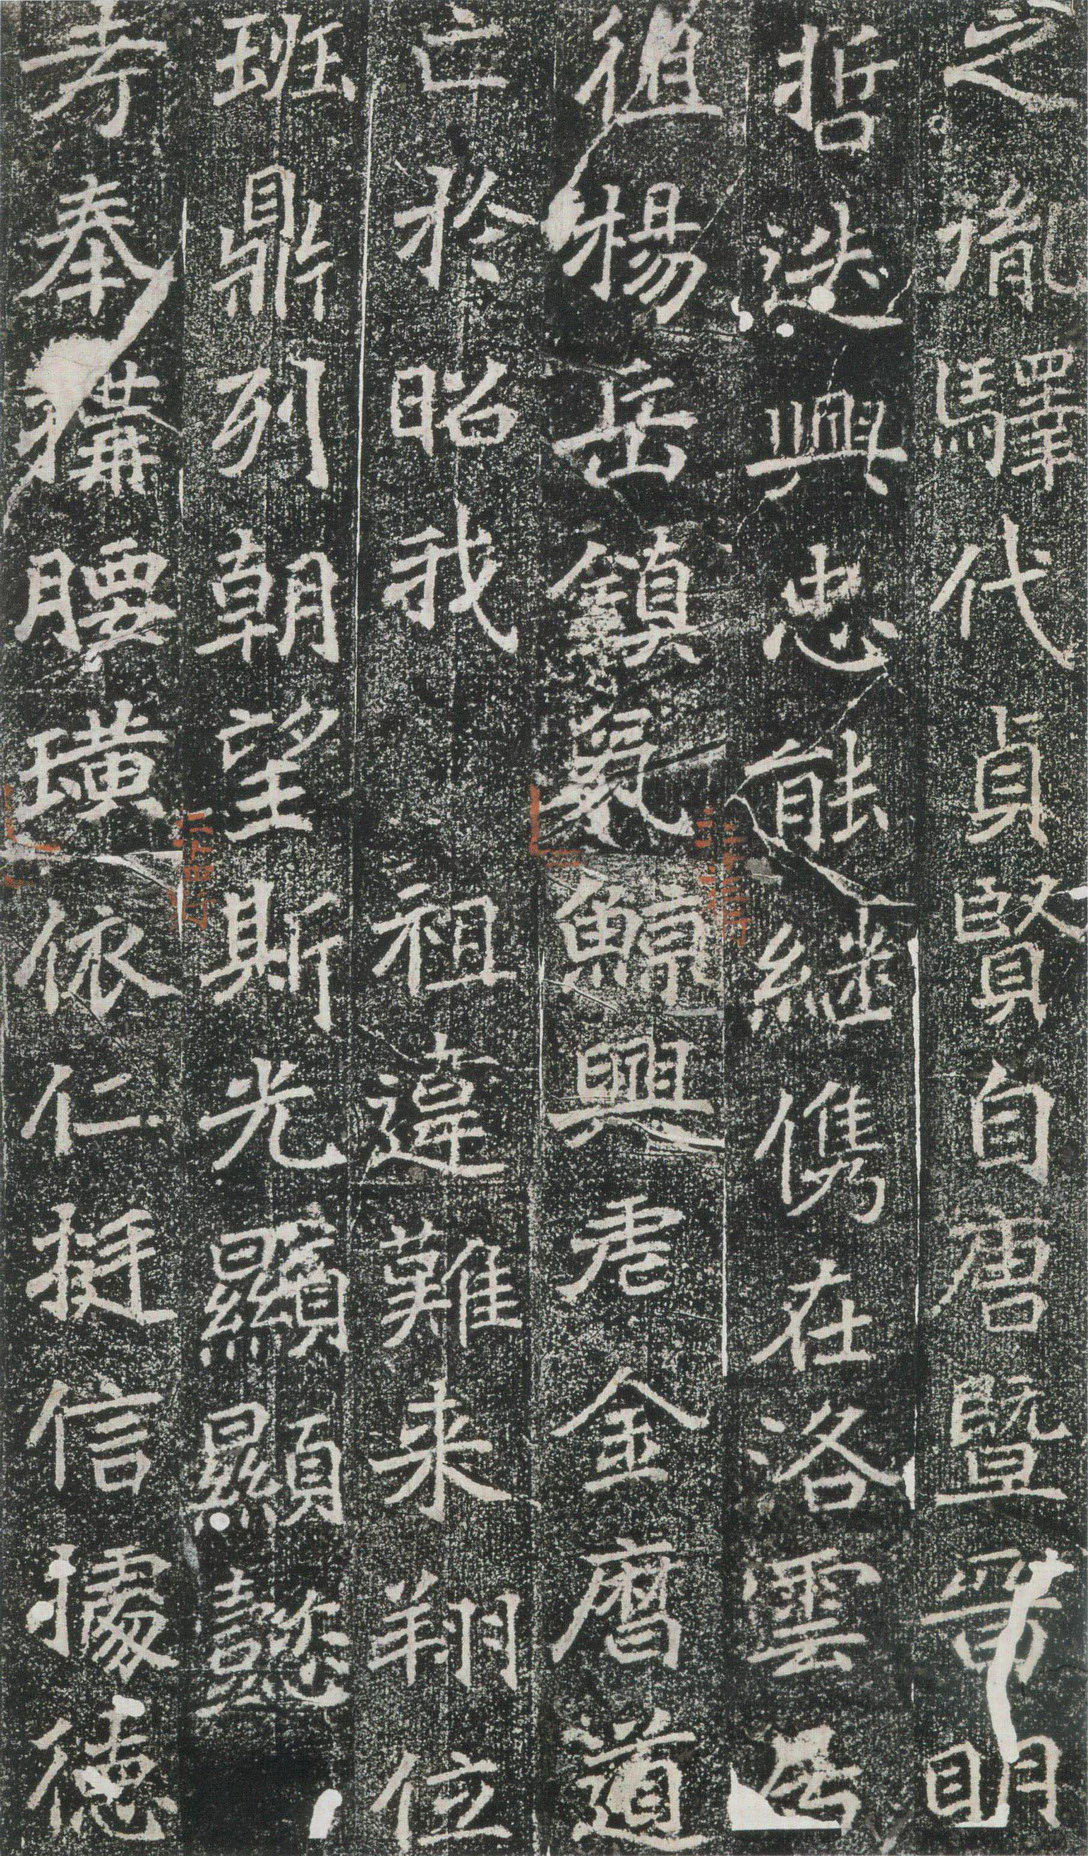 之胤驛代貞賢自唐暨晉明
哲迭興忠能継儁在洛雲
徙楊岳鎮鯨興虐金曆道
亡於昭我祖違難来翔位
班鼎列朝望斯光顯顯懿
考奉構腰璜依仁挺信據德